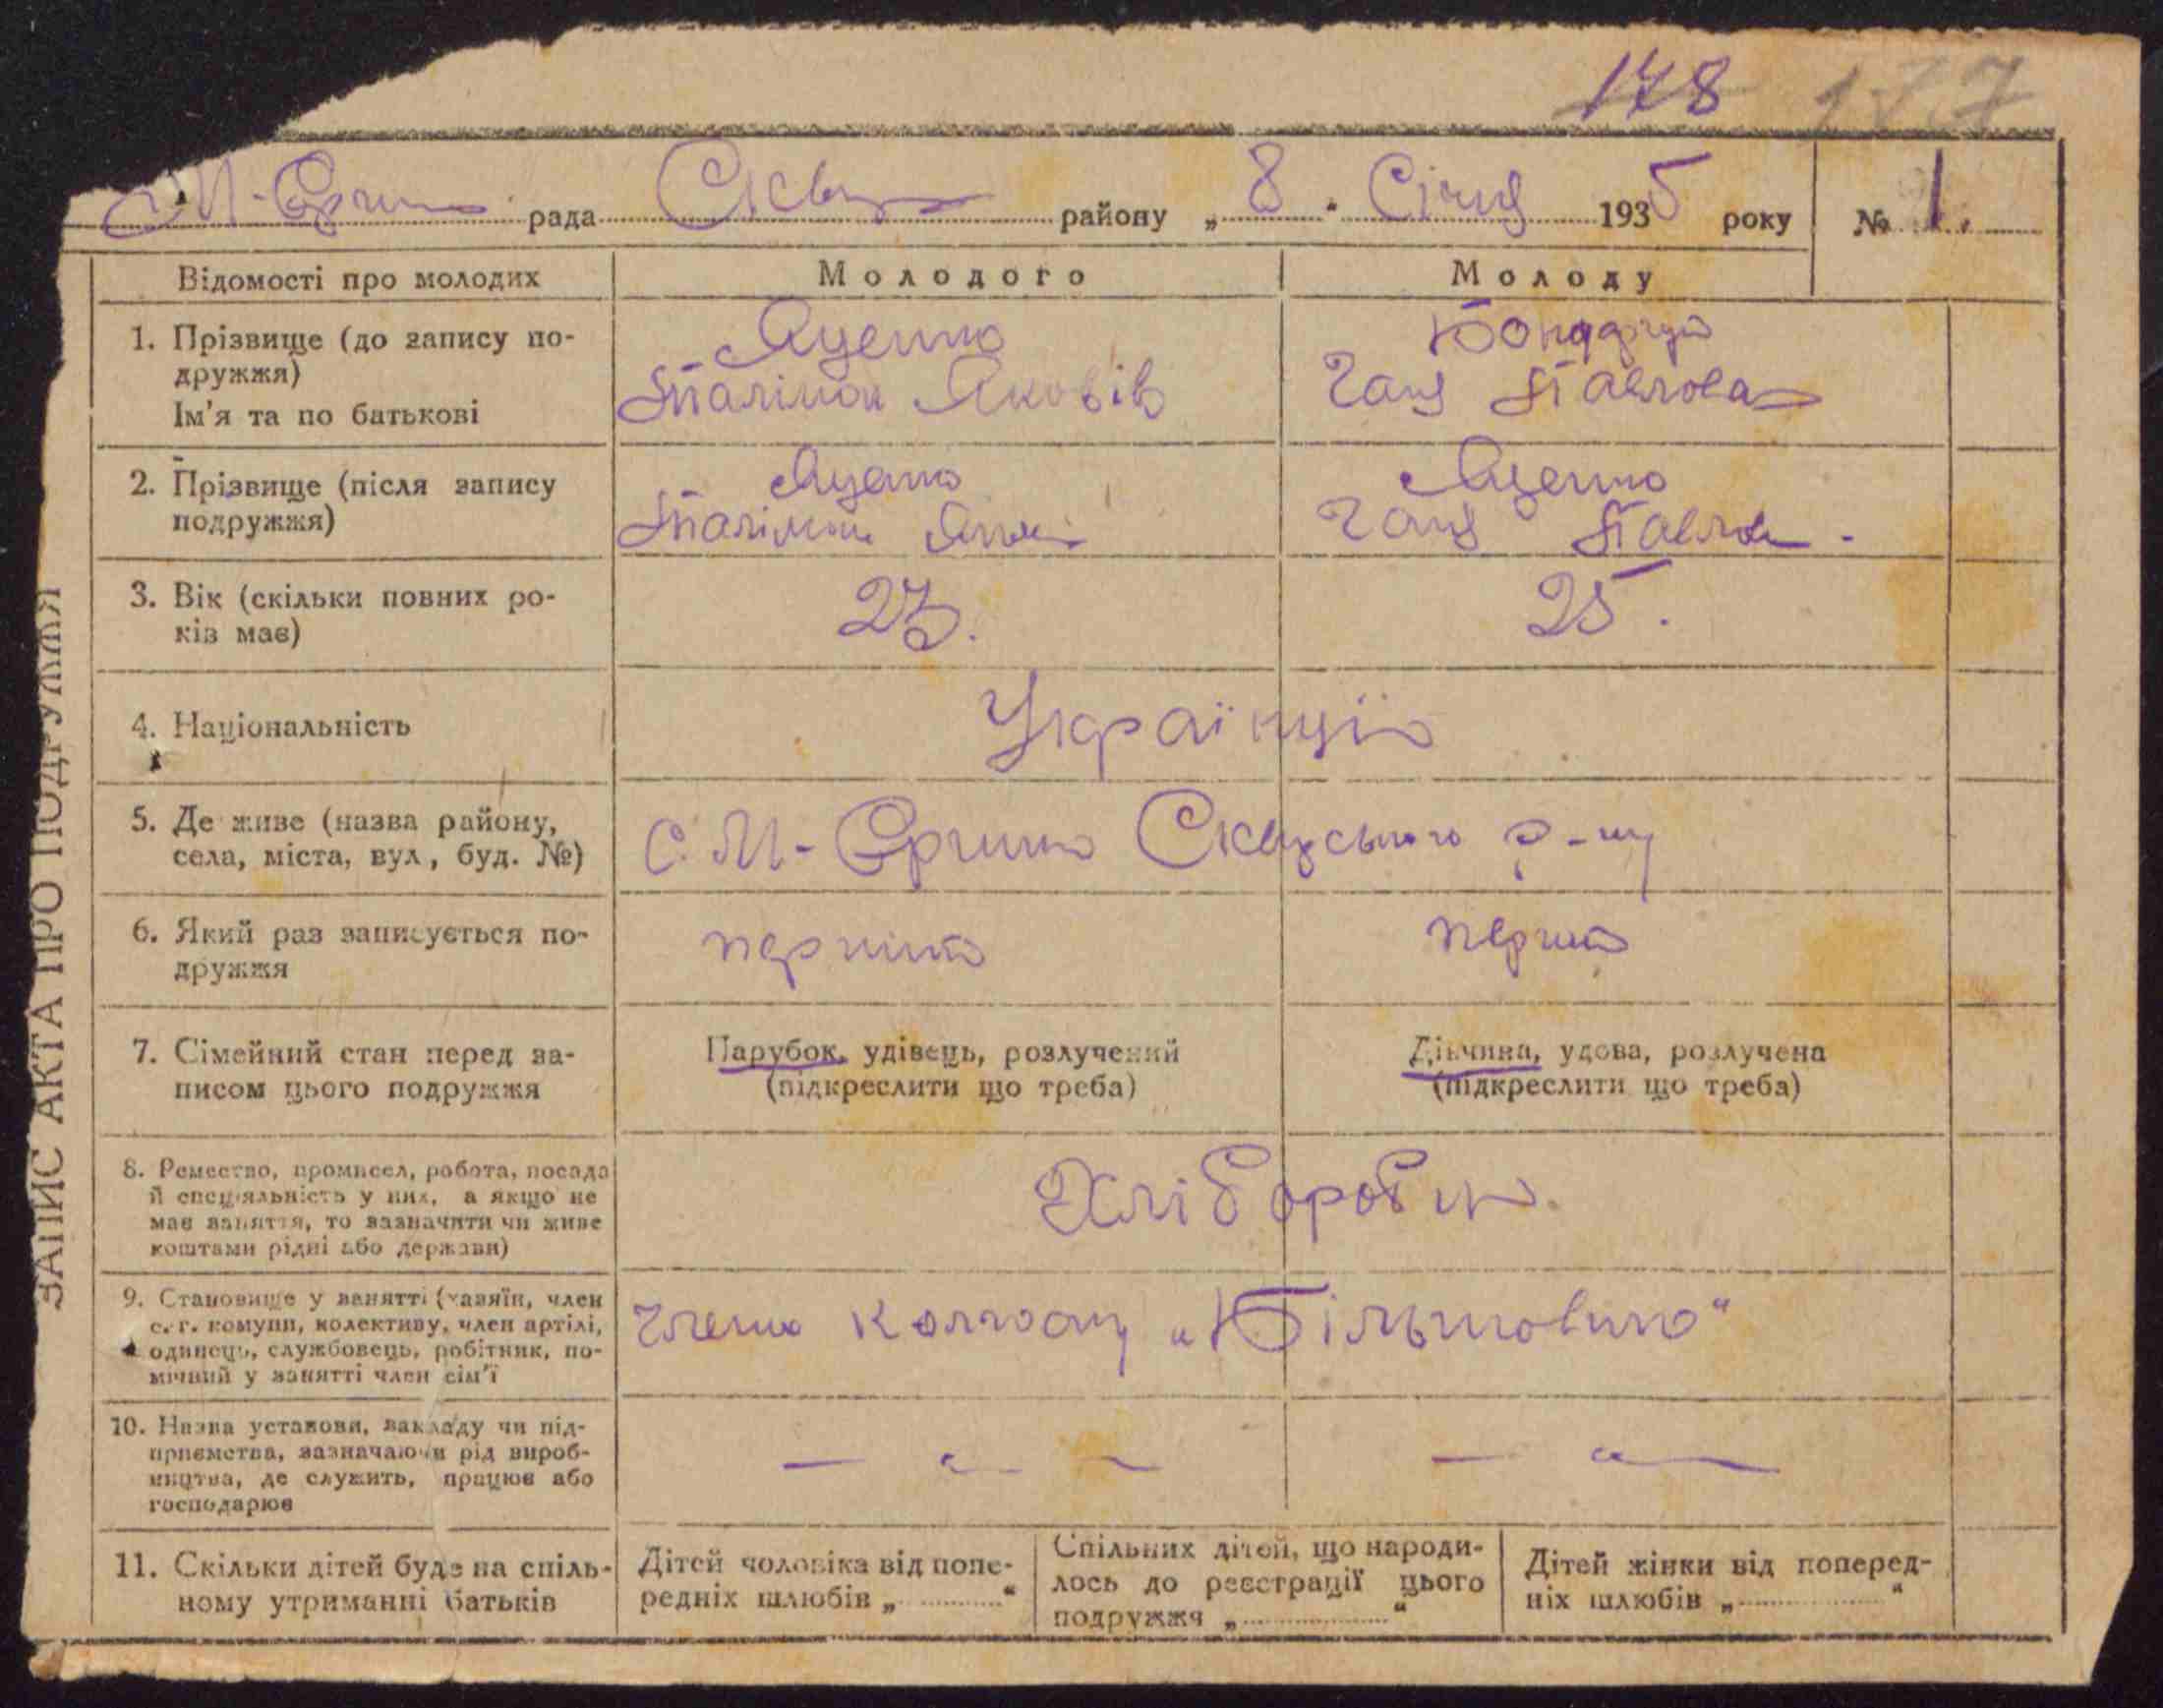 178 177
М-Єрчин рада Сквир району „8“ Січня 1935 року № 1.
Відомості про молодих
Молодого
Молоду
1. Прізвище (до запису по-
дружжя)
Ім'я та по батькові
Яценко
Яковів
Ганя Павлова
2. Прізвище (після запису
подружжя)
Яценко
Яценко
Ганя Павлов
3. Вік (скільки повних ро-
ків має)
23.
25.
4. Національність
Українці
5. Де живе (назва району,
села, міста, вул, буд. №)
с. М-Єрчики Сквирського р-ну
6. Який раз записується по-
дружжя
перший
перший
7. Сімейний стан перед за-
писом цього подружжя
Парубок, удівець, розлучений
(підкреслити що треба)
Дівчина, удова, розлучена
(підкреслити що треба)
8. Ремество, промисел, робота, посада
й спеціяльність у них, а якщо не
має заняття, то зазначити чи живе
коштами рідні або держави)
Хлібороби.
9. Становище у занятті (хазяїн, член
с.-г. комуни, колективу, член артілі,
одинець, службовець, робітник, по-
мічний у занятті член сім'ї
Члени колгоспу „Більшовик“
10. Назва установи, закладу чи під-
приємства, зазначаючи рід вироб-
ництва, де служить, працює або
господарює
— „ —
— „ —
11. Скільки дітей буде на спіль-
ному утриманні батьків
Дітей чоловіка від попе-
редніх шлюбів „..........“
Спільних дітей, що народи-
лось до реєстрації цього
подружжя „..........“
Дітей жінки від поперед-
ніх шлюбів „..........“
ЗАПИС АКТА ПРО ПОДРУЖЖЯ